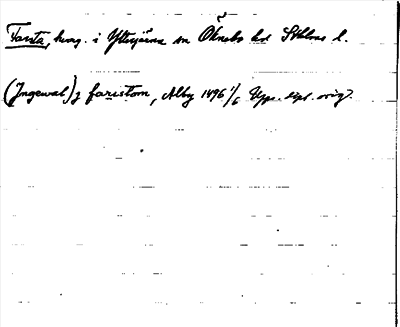 Farsta, herrg. i Ytterjärna sn Öknebo hd Sthlms l.
(Jngewal) j faristom, Alby 1496 1/6 Upps. dipl. orig.